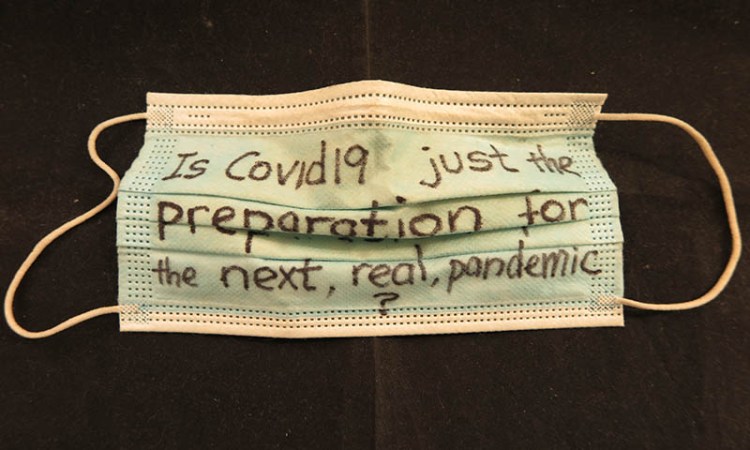 Is Covid19 just the
preparation for
the next, real, pandemic
?